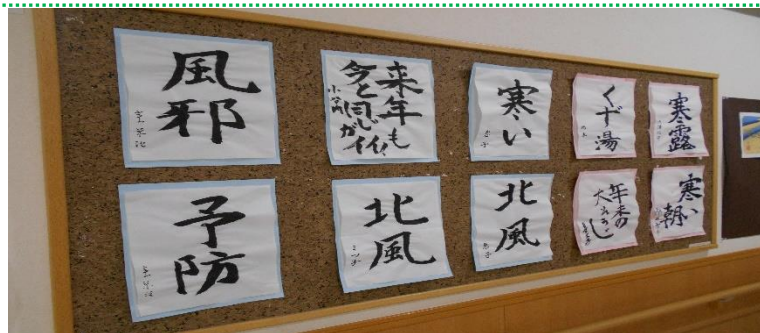 風邪
来年も
今と同じが
イイ
寒い
くず湯
寒露
予防
北風
北風
年末の
寒い
朝